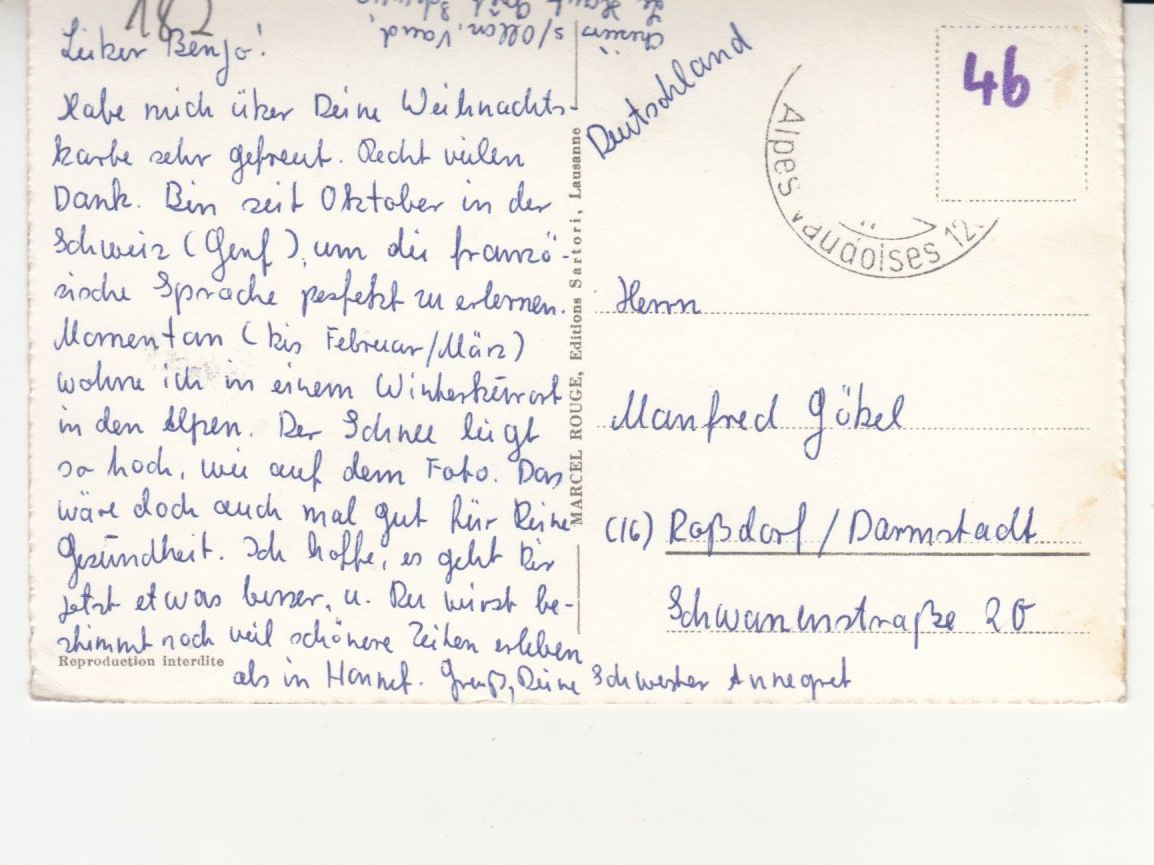 182
Chesières
s/Ollon, Vaud,
Lieber Benjo!
Habe mich über Deine Weihnachts-
karte sehr gefreut. Recht vielen
Dank. Bin seit Oktober in der
Schweiz (Genf), um die franzö-
sische Sprache perfekt zu erlernen.
Momentan (bis Februar/März)
wohne ich in einem Winterkurort
in den Alpen. Der Schnee liegt
so hoch, wie auf dem Foto. Das
wäre doch auch mal gut für Deine
Gesundheit. Ich hoffe, es geht Dir
jetzt etwas besser, u. Du wirst be-
stimmt noch viel schönere Zeiten erleben
als in Hannef. Gruß, Deine Schwester Annegret
Reproduction interdite
MARCEL ROUGE, Editions Sartori, Lausanne
Deutschland
Alpes vaudoises 12.
46
Herrn
Manfred Göbel
(16) Roßdorf / Darmstadt
Schwanenstraße 20